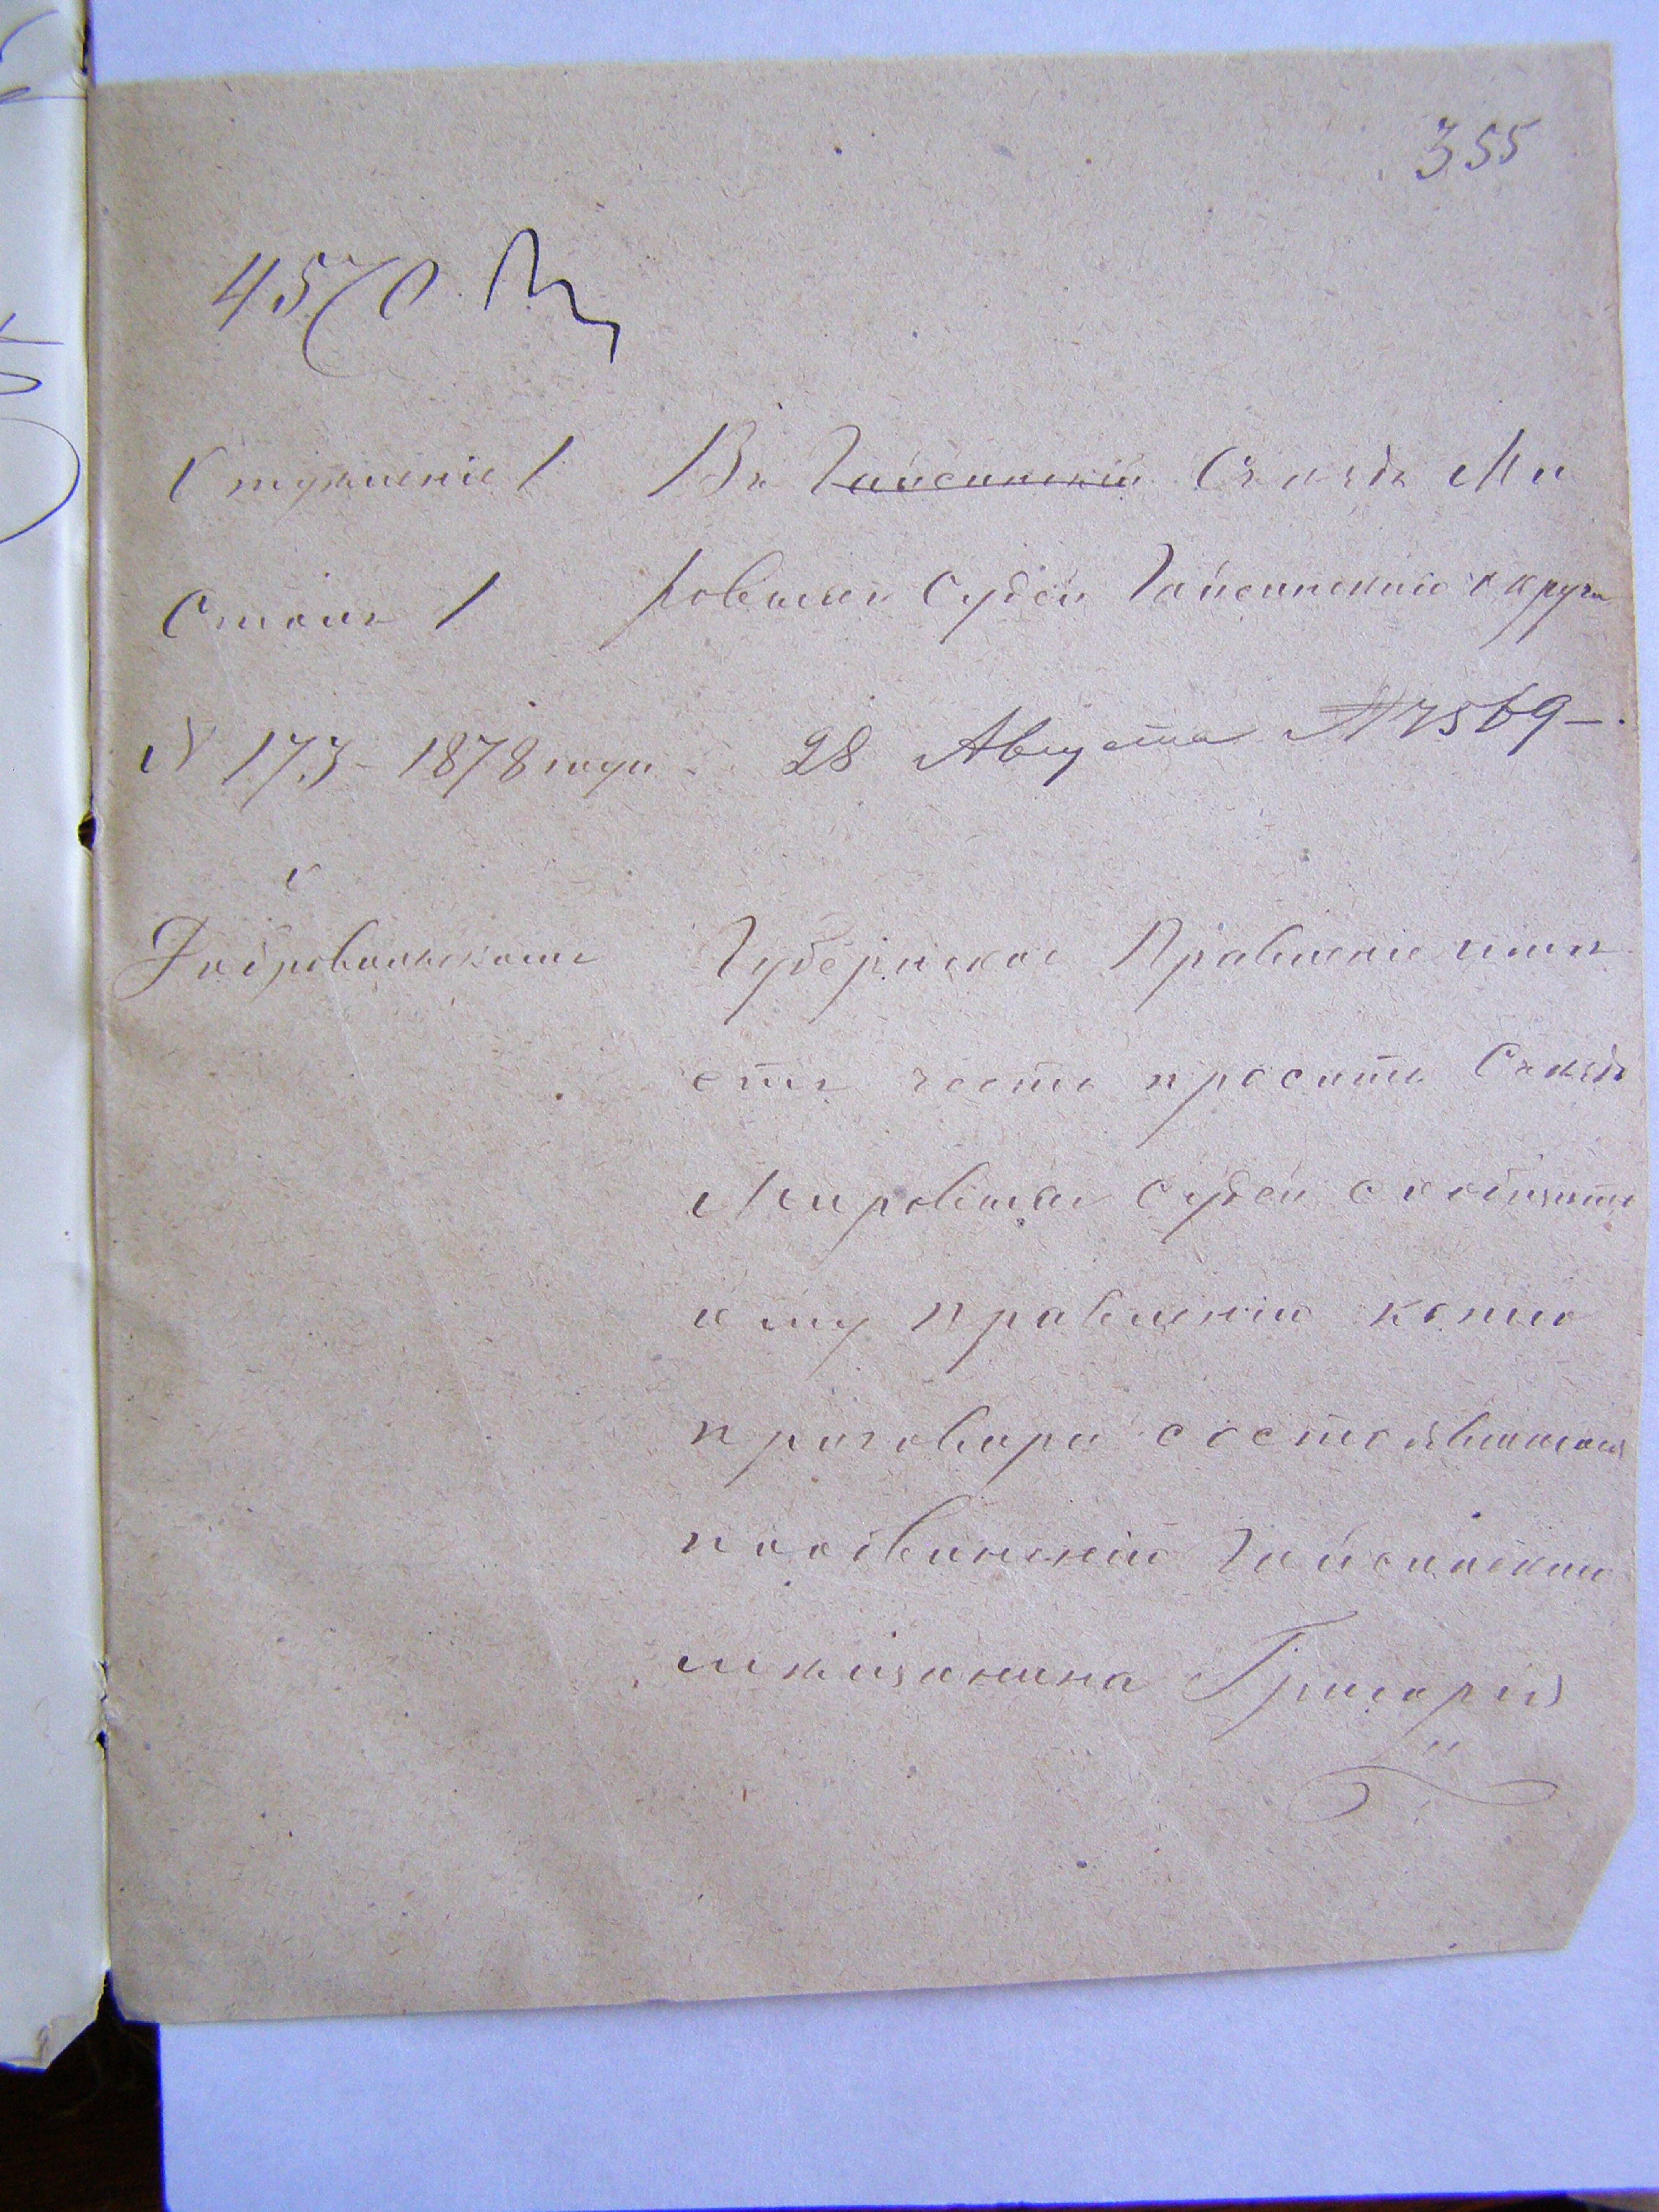 355
4570
Отдѣленіе 1
Столъ 1
N 173 - 1878 года
Въ Гайсинскій Съѣздъ Ми
ровыхъ Судей Гайсинскаго округа
28 Августа № 4569
Губернское Правленіе имѣ
етъ честь просить Съѣздъ
Мировыхъ Судей сообщить
ему правленію копію
приговора состоявшагося
по обвиненію Гайсинскаго
мѣщанина Григорія